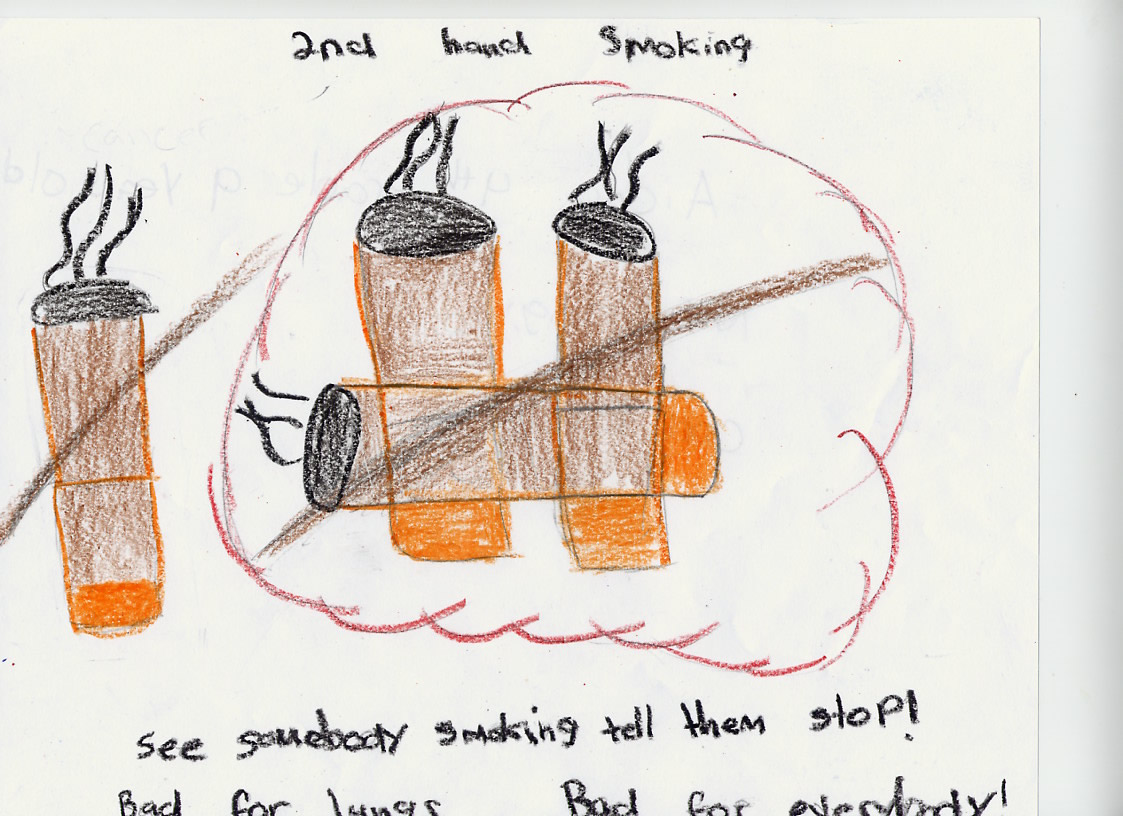 2nd hand Smoking
see somebody smoking tell them stop!
Bad for lungs Bad for everybody!